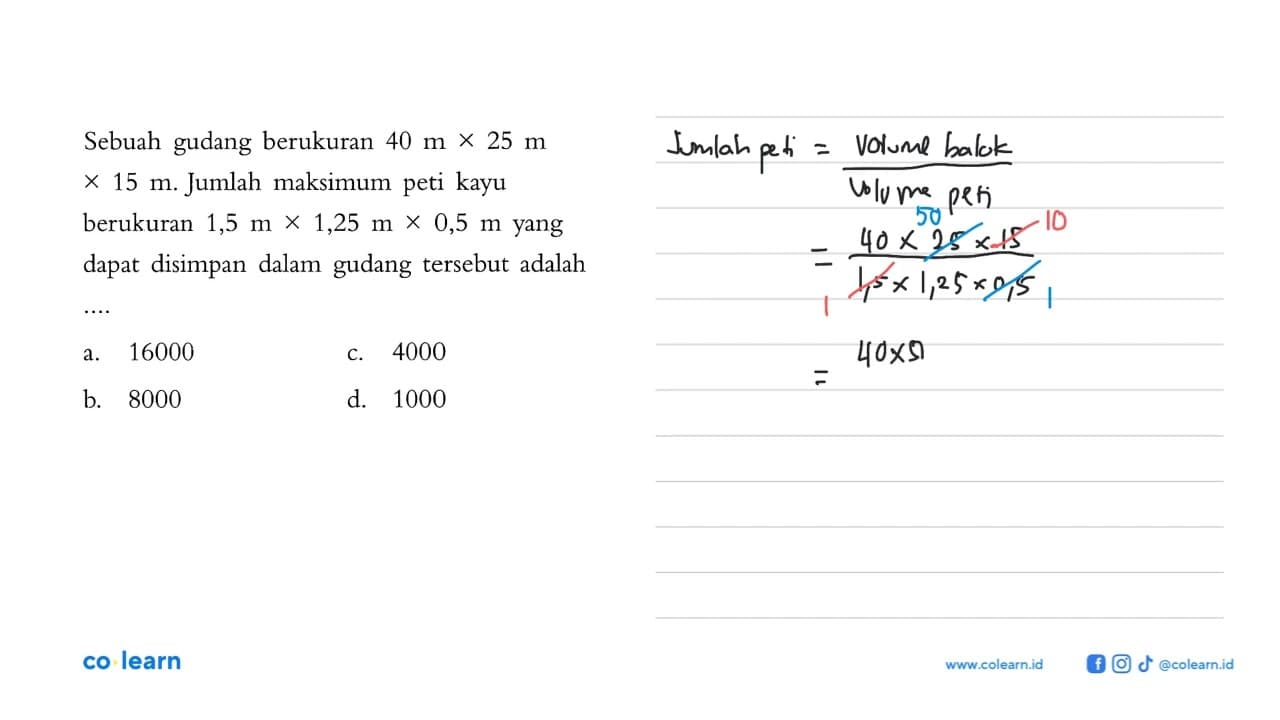 Sebuah gudang berukuran 40 m × 25 m
× 15 m. Jumlah maksimum peti kayu
berukuran 1,5 m × 1,25 m × 0,5 m yang
dapat disimpan dalam gudang tersebut adalah
....
a. 16000 c. 4000
b. 8000 d. 1000
Jumlah peti = Volume balok
Volume peti
50 10
= 40 × 25 × 15
1,5 × 1,25 × 0,5
1 1
40 × 5
=
co learn
www.colearn.id @colearn.id